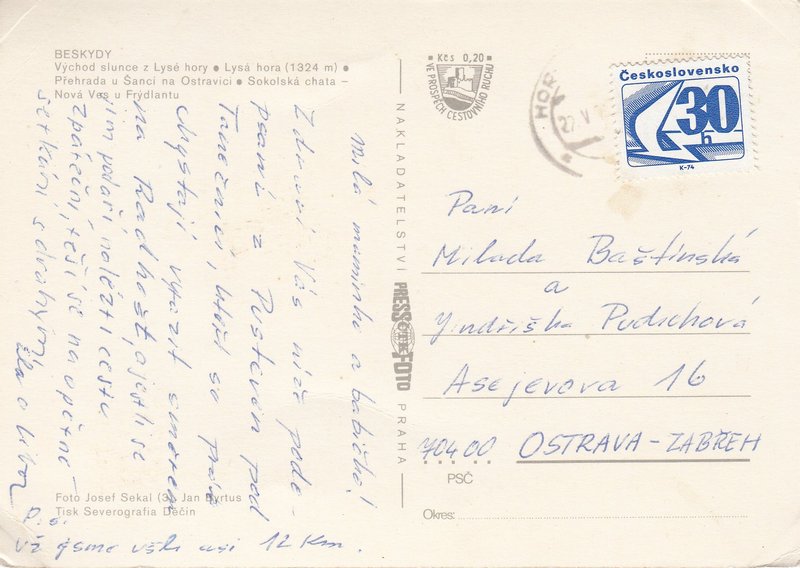 BESKYDY
Východ slunce z Lysé hory ● Lysá hora (1324 m) ●
Přehrada u Šancí na Ostravici ● Sokolská chata –
Nová Ves u Frýdlantu
Milá maminko a babičko!
Zdraví Vás níže pode-
psaní z Pusteven pod
Tanečnicí, kteří se právě
chystají vyrazit směrem
na Radhošť, a jestli se
jim podaří nalézti cestu
zpáteční, těší se na opětné
setkání s drahým
a Libor
P.S.
Už jsme ušli asi 12 km.
Foto Josef Sekal (3), Jan Byrtus
Tisk Severografia Děčín
NAKLADATELSTVÍ PRESSFOTO PRAHA
Kčs 0,20
VE PROSPĚCH CESTOVNÍHO RUCHU
HOR
27. V
Československo
30
h
K-74
Paní
Milada Baštinská
a
Jindřiška Pudichová
Asejevova 16
704 00 OSTRAVA-ZÁBŘEH
PSČ
Okres: